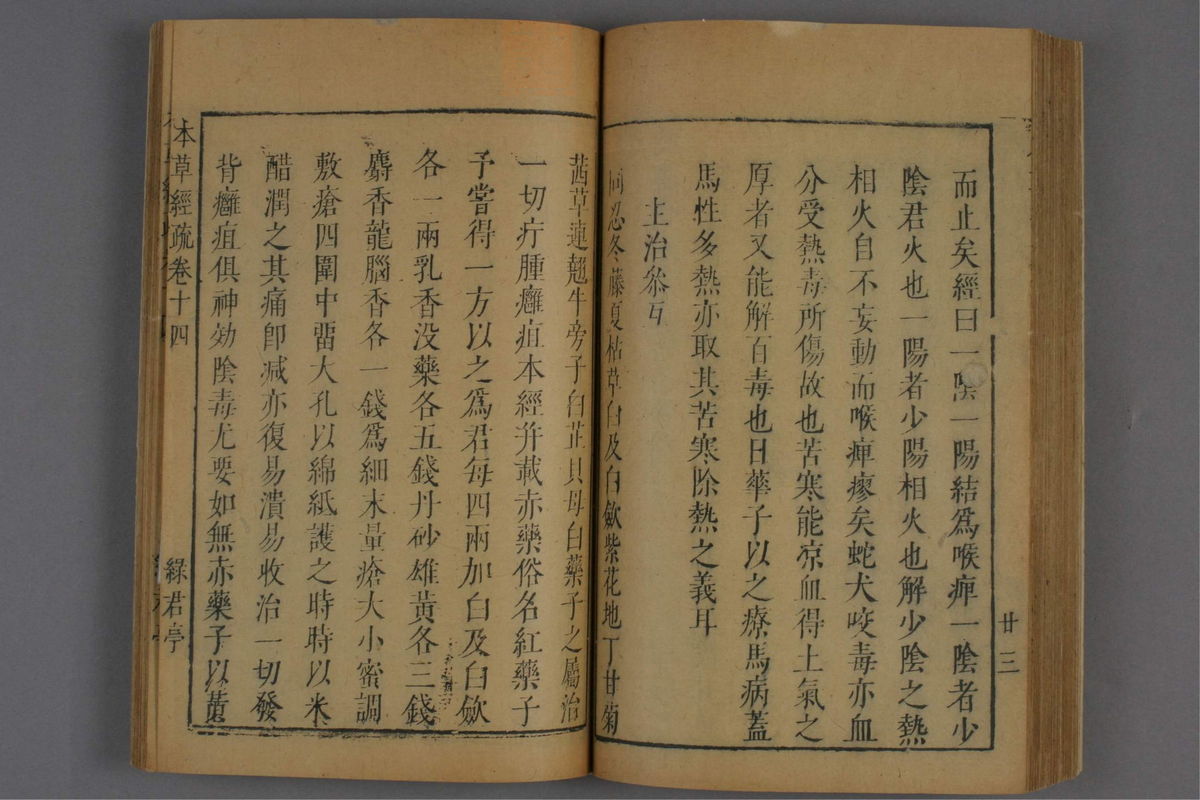 而止矣經曰一陰一陽結爲喉痺一陰者少
陰君火也一陽者少陽相火也解少陰之熱
相火自不妄動而喉痺瘳矣蛇犬咬毒亦血
分受熱毒所傷故也苦寒能凉血得土氣之
厚者又能解百毒也日華子以之療馬病蓋
馬性多熱亦取其苦寒除熱之義耳
主治叅互
同忍冬藤夏枯草白及白斂紫花地丁甘菊
廿三
茜草連翹牛旁子白芷貝母白藥子之屬治
一切疔腫癰疽本經并載赤藥俗名紅藥子
予嘗得一方以之爲君每四兩加白及白斂
各一兩乳香没藥各五錢丹砂雄黃各三錢
麝香龍腦香各一錢爲細末量瘡大小蜜調
敷瘡四圍中畱大孔以綿紙護之時時以米
醋潤之其痛卽减亦復易潰易收治一切發
背癰疽俱神効陰毒尤要如無赤藥子以黃
本草經疏卷十四
緑君亭